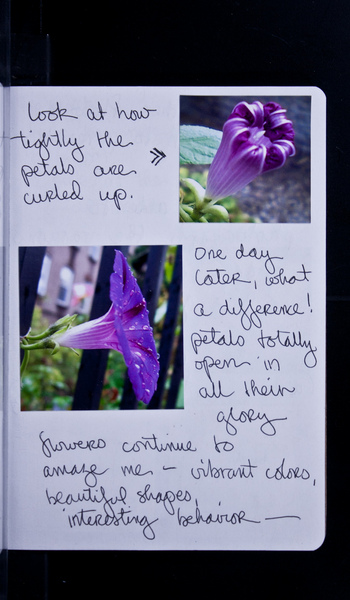 look at how
tightly the
petals are
curled up.
»
One day
later, what
a difference!
petals totally
open in
all their
glory
flowers continue to
amaze me – vibrant colors,
beautiful shapes,
interesting behavior —